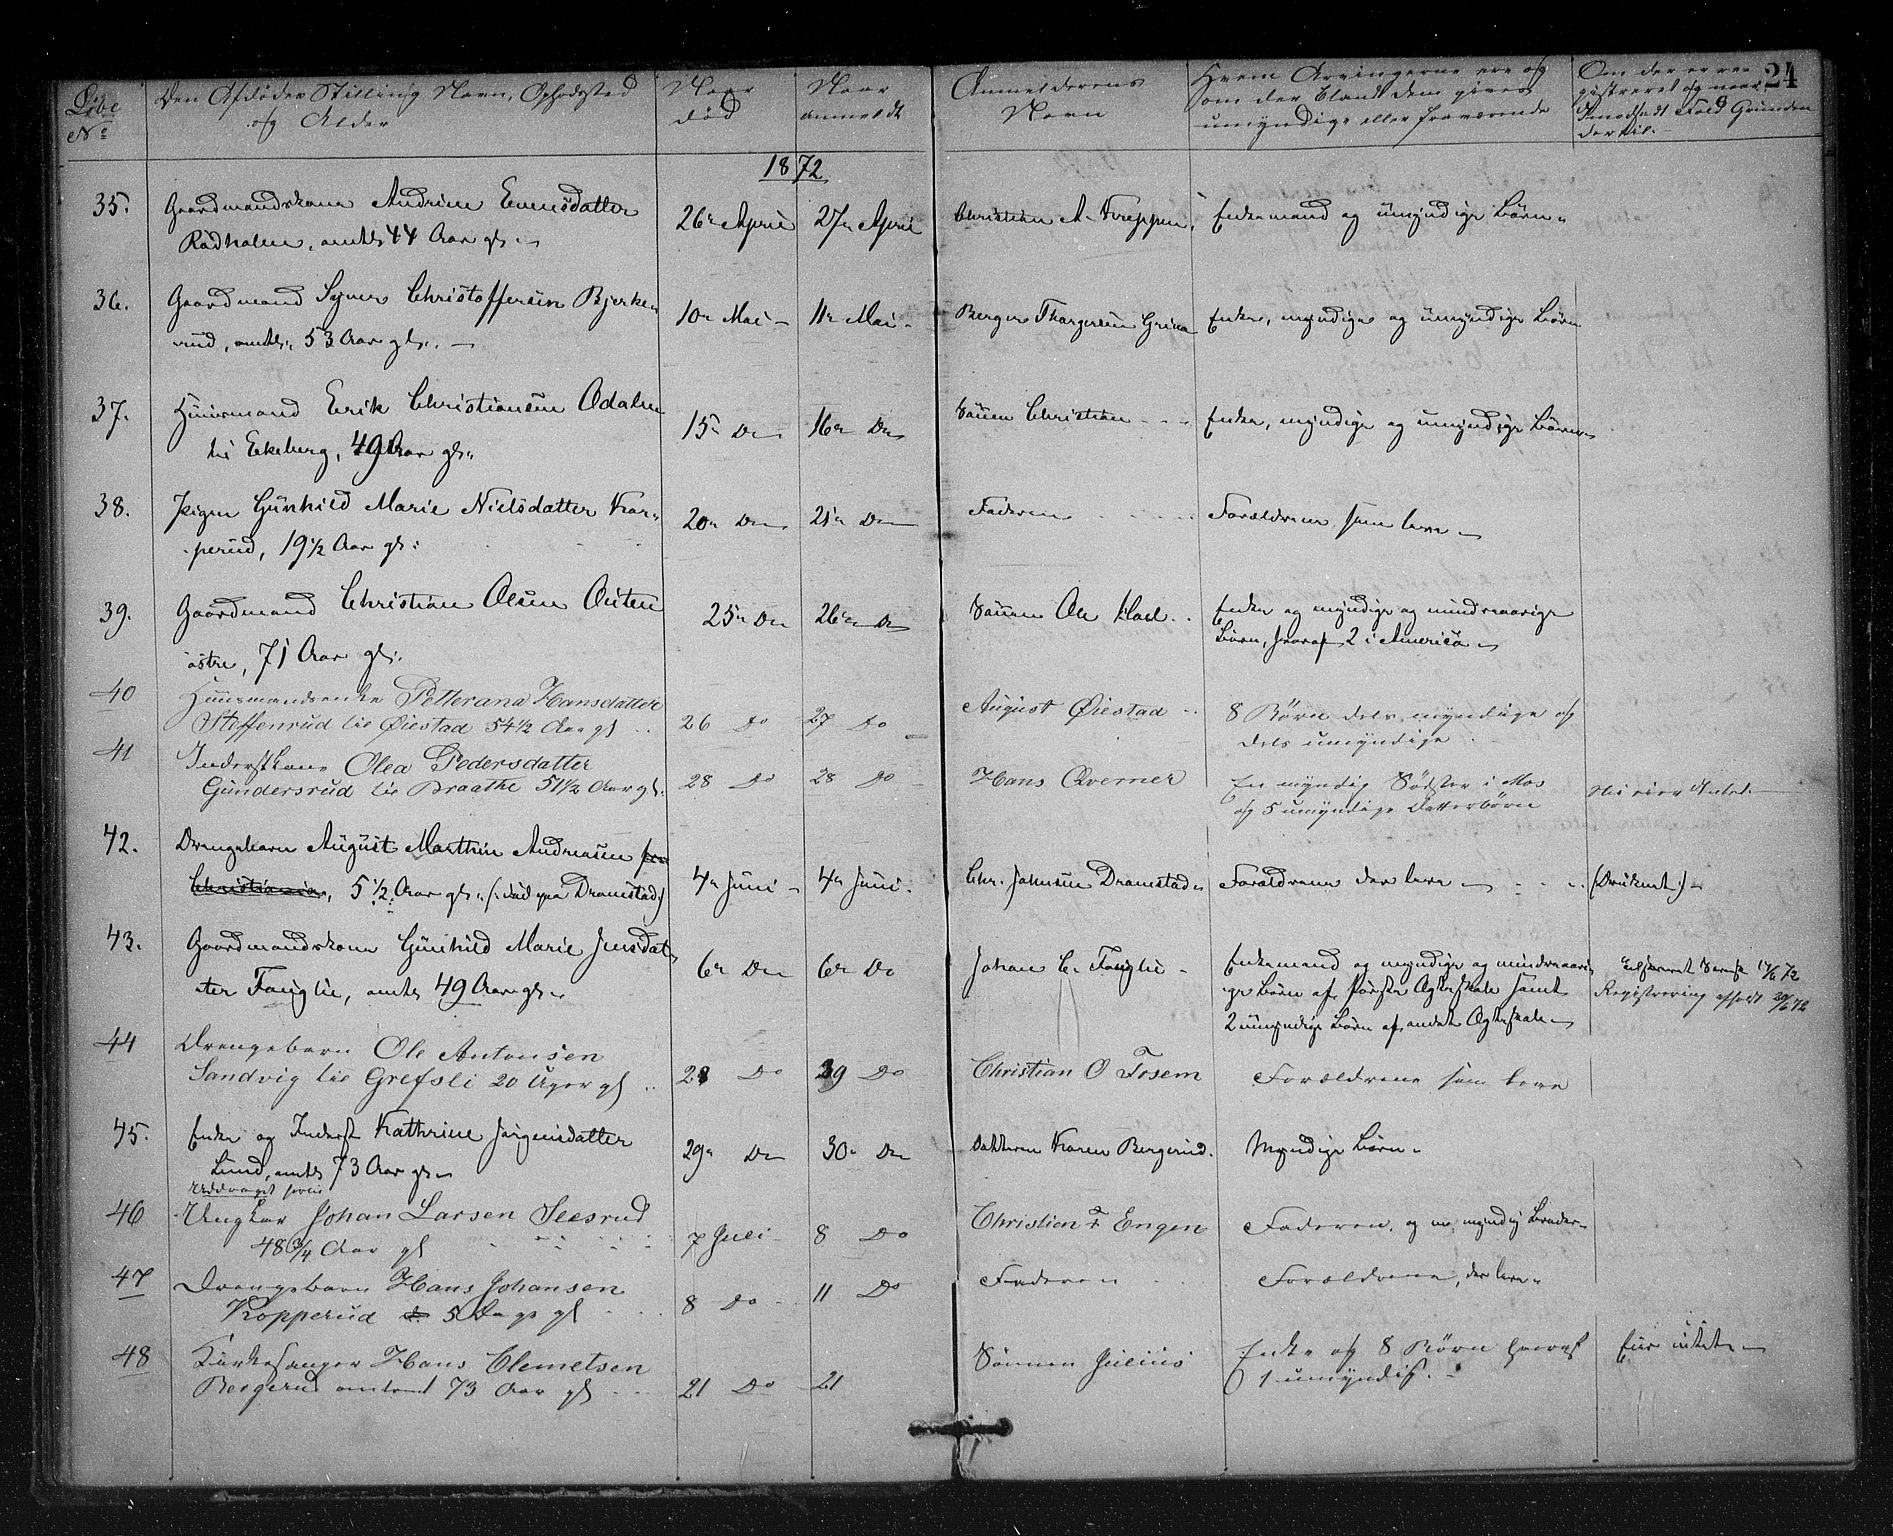 24
Løbe
No
Den Afdødes Stilling, Navn, Opholdssted
og Alder
Naar
død
Naar
anmeldt
Anmelderens
Navn
Hvem Arvingerne ere og
om der blandt dem gives
umyndige eller fraværende
Om der er re-
gistreret og naar.
I modsat Fald Grunden
dertil.
1872
35. Gaardmandskone Andrine Evensdatter
Rødholen, omtr. 44 Aar gl.
26de April 27de April Christian A. Ureppen. Enkemand og umyndige Børn.
36. Gaardmand Syver Christoffersen Bjerke-
rud, omtr. 53 Aar gl.
10de Mai - 11te Mai - Berger Thorgersen Grina Enke, myndige og umyndige Børn
37. Huusmand Erik Christiansen Odalen
til Ekeberg, 49 Aar gl.
15de Do 16de Do Sønnen Christian Enke, myndige og umyndige Børn
38. Pigen Gunhild Marie Nielsdatter Kop-
perud, 19 1/2 Aar gl.
20de Do 21de Do Faderen Forældrene som leve
39. Gaardmand Christian Olsen Østen
østre, 71 Aar gl.
25de Do 26de Do Sønnen Ole Hoel. Enke og myndige og mindreaarige
Børn, hvoraf 2 i America
40 Huusmandsenke Petterana Hansdatter
Steffenrud til Øiestad 54 1/2 Aar gl
26 Do 27 Do August Øiestad 8 Børn dels myndige og
dels umyndige
41 Inderstkone Olea Pedersdatter
Gundersrud til Braathe 51 1/2 Aar gl.
28 Do 28 Do Hans Qverner En myndig Søster i Mos
og 5 umyndige Datterbørn
42. Drengebarn August Marthin Andreasen fra
Christiania, 5 1/2 Aar gl. (: død paa Dramstad:)
4de Juni - 4de Juni. Chr. Johnsen Dramstad Forældrene der leve (Druknet)
43. Gaardmandskone Gunhild Marie Jensdat-
ter Fonglie, omtr. 49 Aar gl.
6te Do 6te Do Johan C. Fonglie - Enkemand og myndige og mindreaari-
ge Børn af første Ægteskab samt
2 umyndige Børn af andet Ægteskab
Registrering afholdt 20/6 72
44 Drengebarn Ole Antonsen
Sandvig til Grefsli 20 Uger gl
28 Do 29 Do Christian O Fosem Forældrene som leve
45. Enke og Inderst Kathrine Jørgensdatter
Lund, omtr. 73 Aar gl.
29de Do 30de Do Datteren Karen Bergerud. Myndige Børn.
46 Ungkar Johan Larsen Seesrud
48 3/4 Aar gl
7 Juli 8 Do Christian F Engen Faderen, og en myndig Broder
47 Drengebarn Hans Johansen
Kopperud 5 Dage gl
8 Do 11 Do Faderen Forældrene, der leve.
48 Kirkesanger Hans Clemetsen
Bergerud omtrent 73 Aar gl
21 Do 21 Sønnen Julius Enke og 8 Børn hvoraf
1 umyndig.
Eier intet